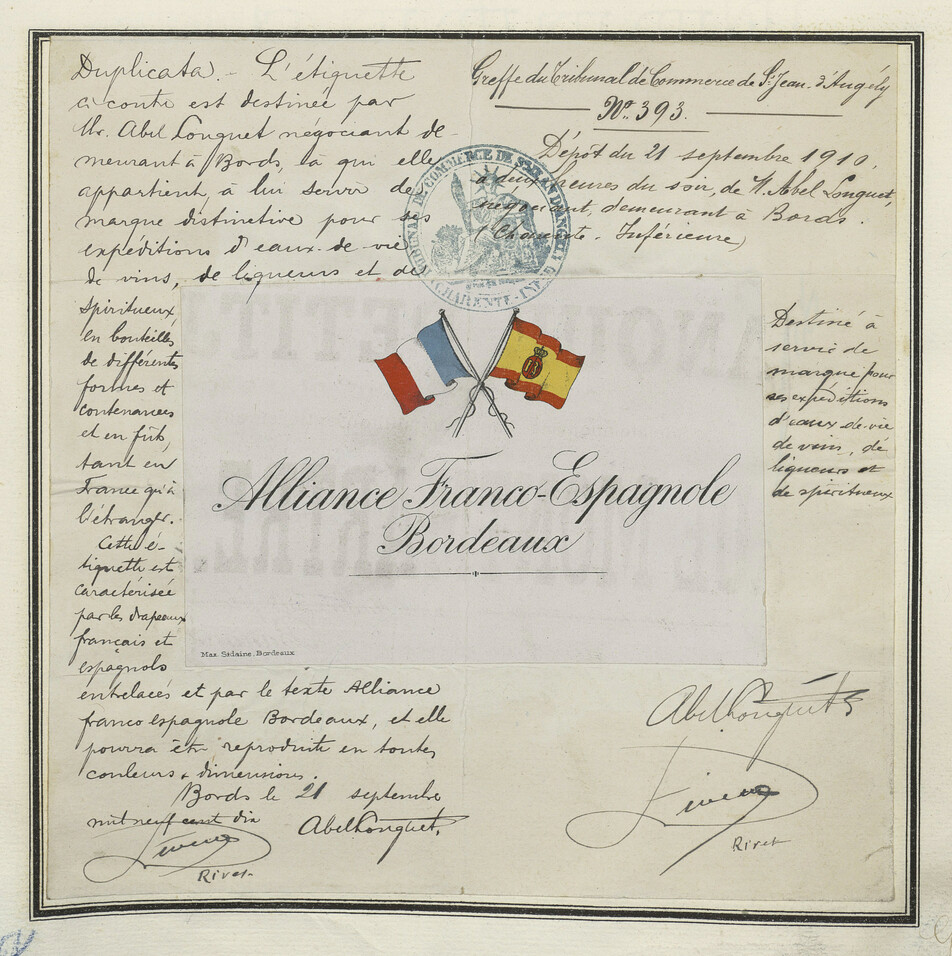 Duplicata. - L'étiquette
ci contre est destinée par
Mr. Abel Longuet négociant de-
meurant à Bords, à qui elle
appartient, à lui servir de
marque distinctive pour ses
expéditions d'eaux-de-vie
de vins, de liqueurs et de
spiritueux,
en bouteilles
de différentes
formes et
contenances
et en fûts,
tant en
France qu'à
l'étranger.
Cette é-
tiquette est
caractérisée
par les drapeaux
français et
espagnols
entrelacés et par le texte Alliance
franco espagnole Bordeaux, et elle
pourra être reproduite en toutes
couleurs & dimensions.
Bords le 21 septembre
mil neuf cent dix
Abel Longuet
Rivet
Greffe du Tribunal de Commerce de St Jean-d'Angély
No. 393.
Dépôt du 21 septembre 1910,
à deux heures du soir, de M. Abel Longuet,
négociant, demeurant à Bords.
(Charente-Inférieure)
TRIBUNAL DE COMMERCE DE ST JEAN D'ANGELY
CHARENTE-INFRE
Alliance Franco-Espagnole
Bordeaux
Max. Sédaine, Bordeaux
Destiné à
servir de
marque pour
ses expéditions
d'eaux-de-vie
de vins, de
liqueurs et
de spiritueux
Abel Longuet
Rivet